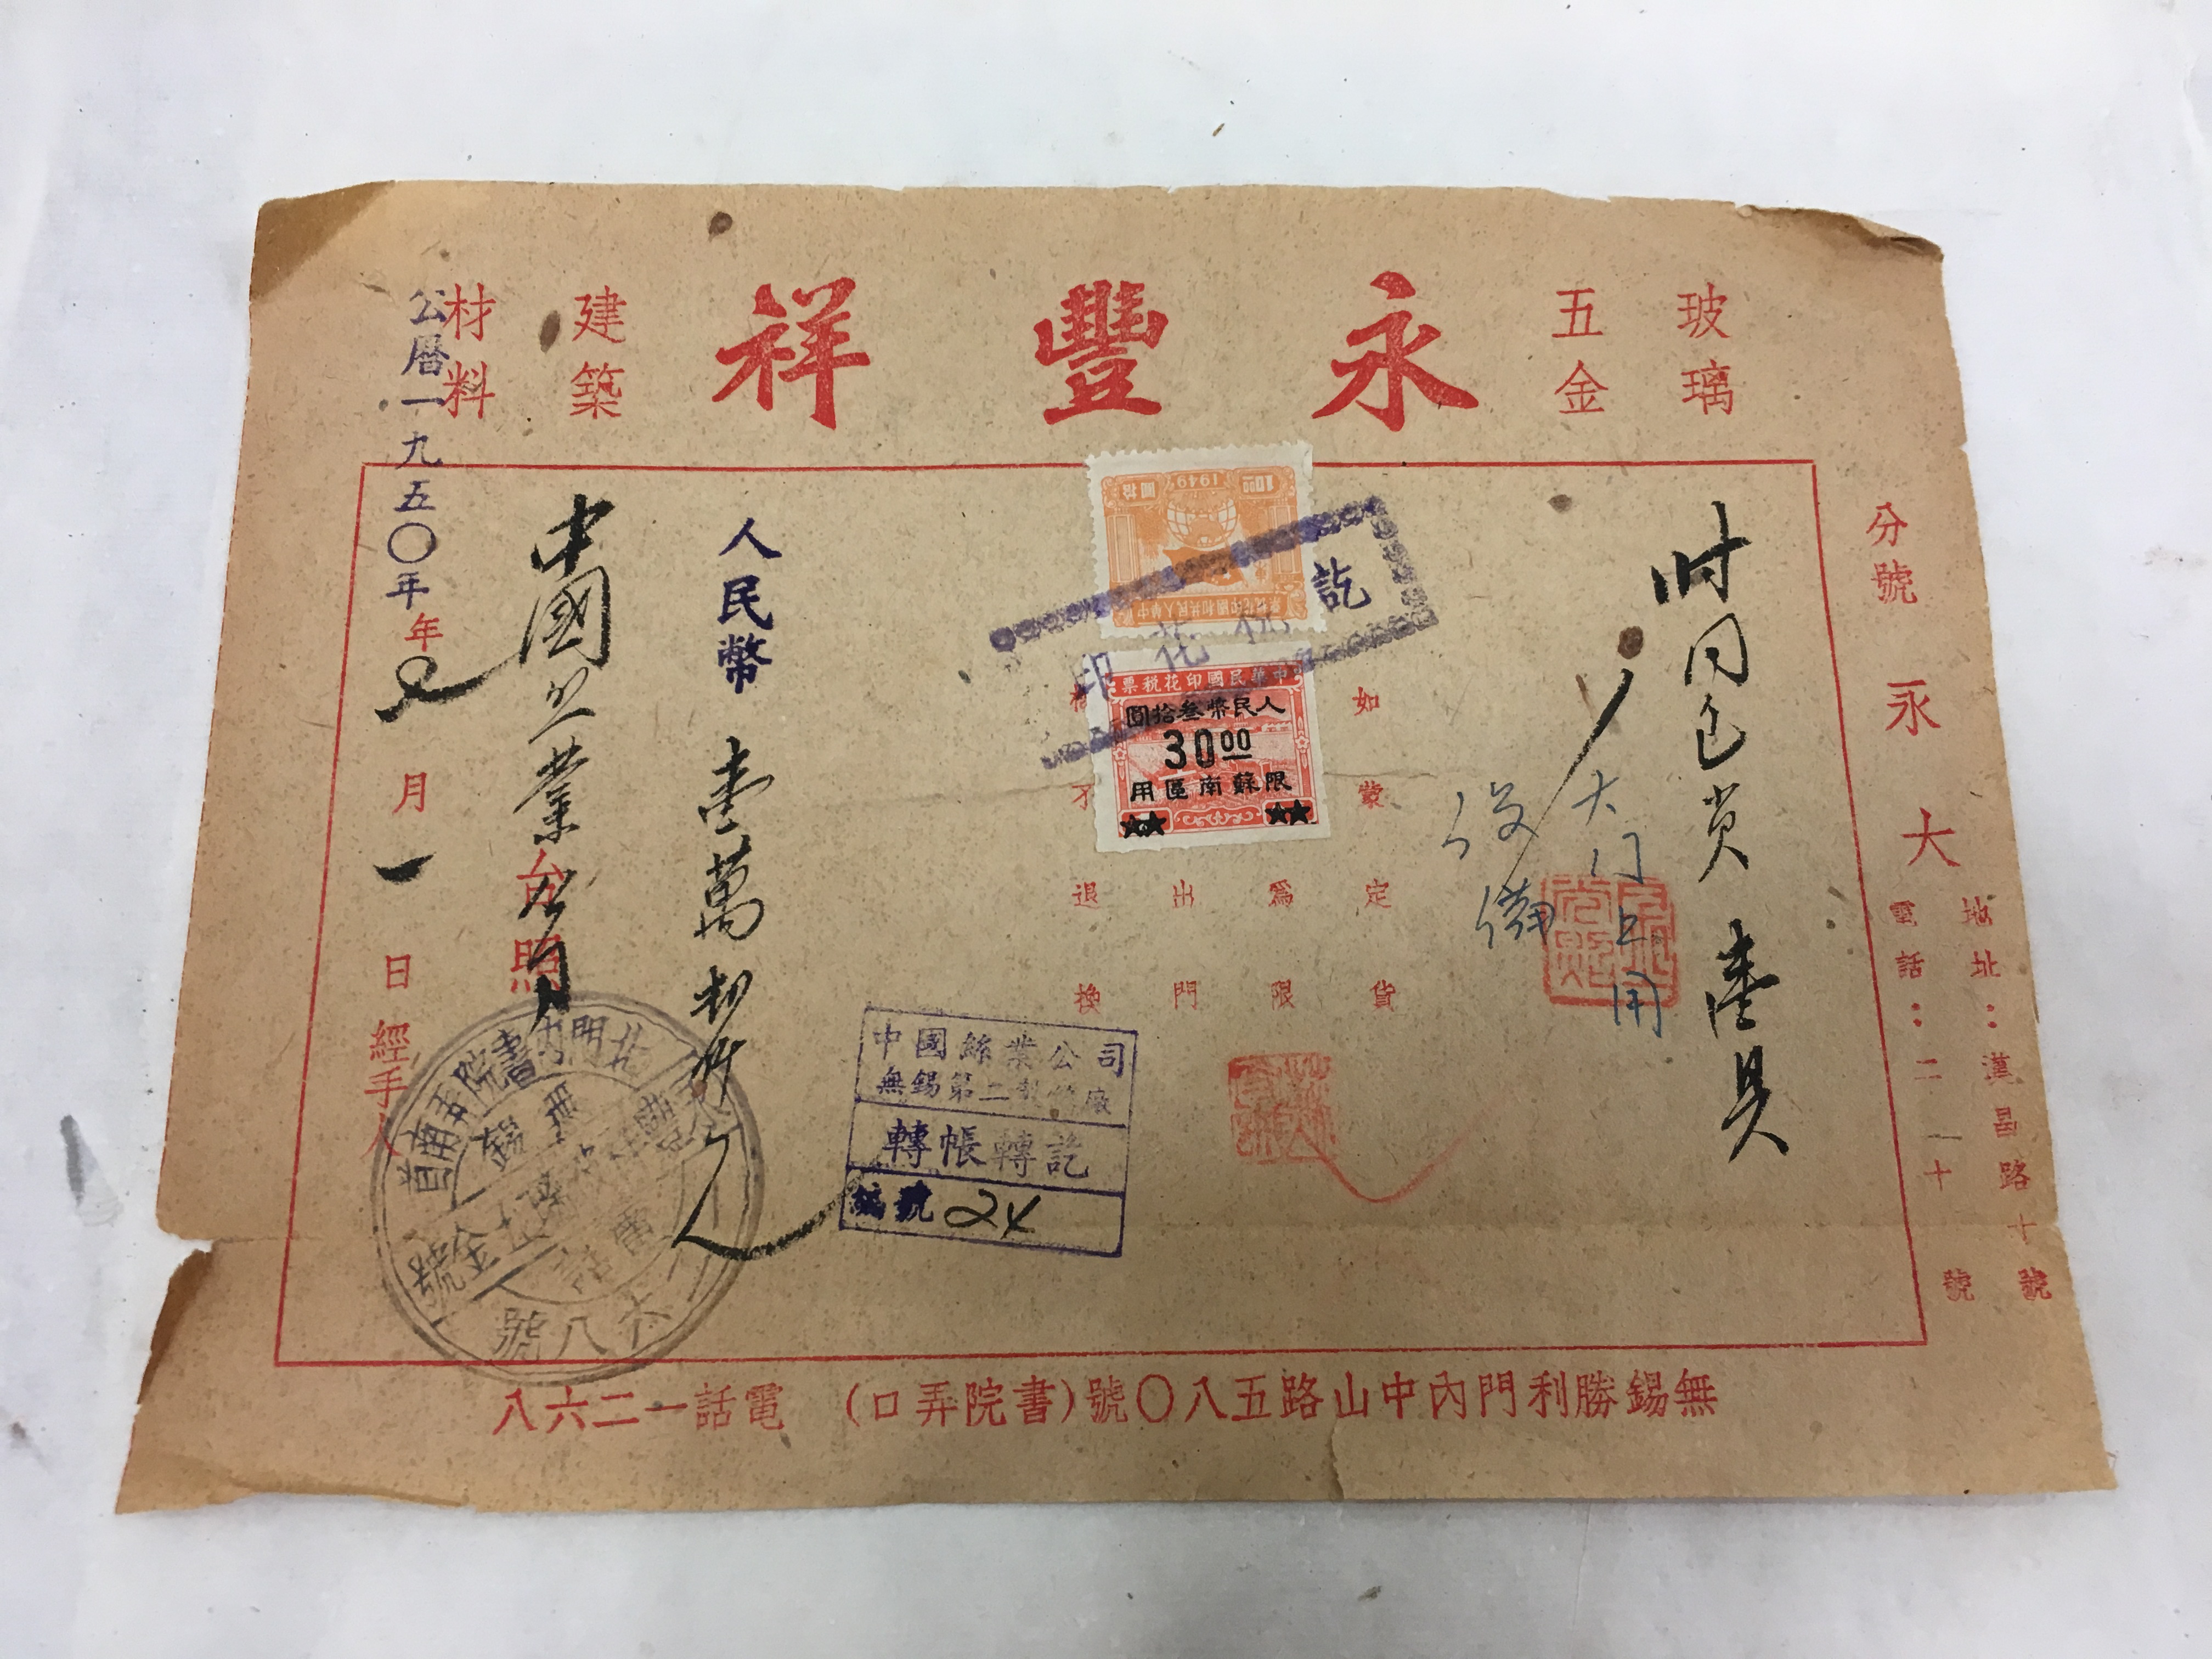 永豐祥
玻璃
五金
建築
材料
分號
永大
地址：漢昌路十號
電話：二一十號
大门上用
设備
如蒙定貨
爲限
出門
退換
10.00
1949
拾圓
中華人民共和國印花稅票
中華民國印花稅票
人民幣叁拾圓
30.00
限蘇南區用
印花稅訖
人民幣
壹萬
中國
台照
公曆一九五〇年
年
月一日
經手人
中國絲業公司
無錫第二製絲廠
轉帳轉訖
編號 24
無錫
電話
六八號
無錫勝利門內中山路五八〇號(書院弄口) 電話一二六八